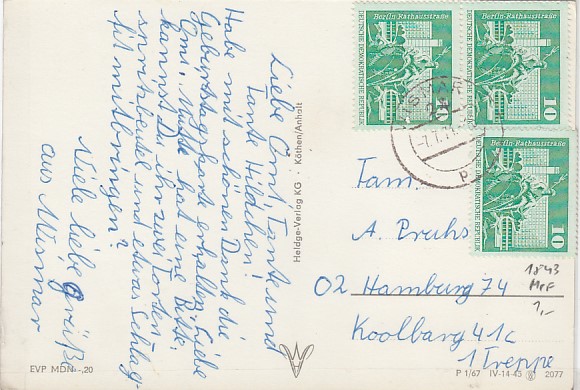 Liebe Omi, Tante und
Tante Hildchen!
Habe mit bösen Dank die
Geburtstagskarte erhalten. Liebe
Omi, Mutti hat eine Bitte,
kannst Du ihr zwei Torten-
spritzbeutel und etwas Schlag-
fit mitbringen?
Viele liebe Grüße
aus Wismar
EVP MDN -,20
Heldge-Verlag KG · Köthen/Anhalt
Berlin-Rathausstraße
DEUTSCHE DEMOKRATISCHE
REPUBLIK
10
Berlin-Rathausstraße
DEUTSCHE DEMOKRATISCHE
REPUBLIK
10
Berlin-Rathausstraße
DEUTSCHE DEMOKRATISCHE
REPUBLIK
10
WISMAR
Fam.
A. Pruhs
02 Hamburg 74
Koolbarg 41c
1 Treppe
1843
MeF
1,-
P 1/67 IV-14-45 2077